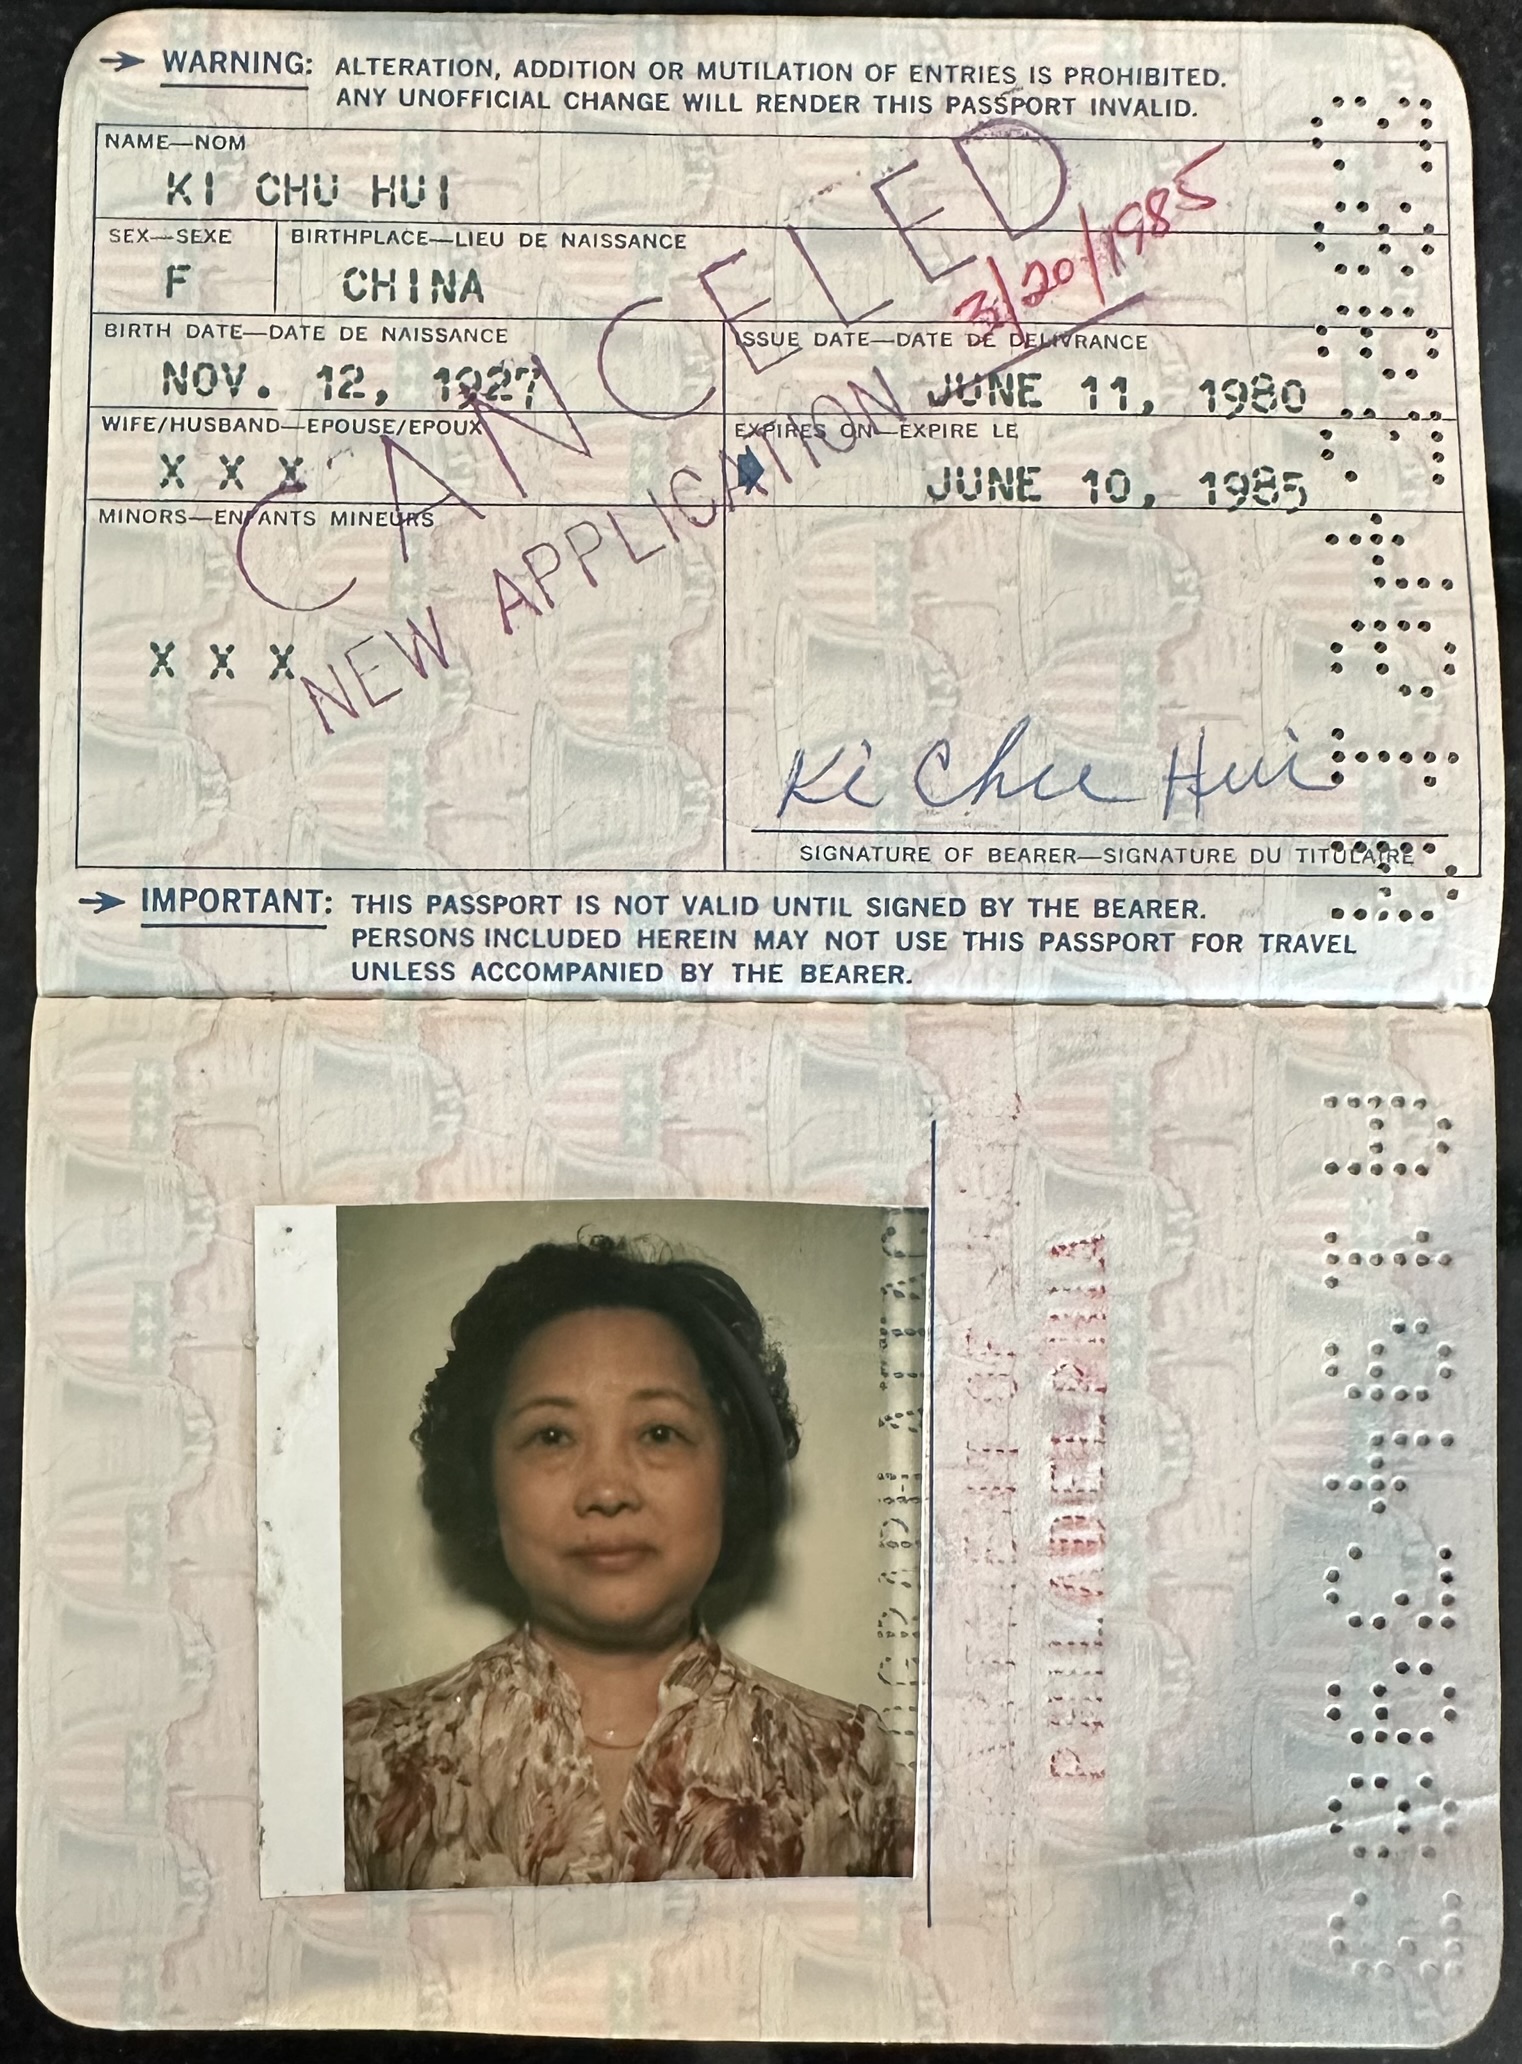 → WARNING: ALTERATION, ADDITION OR MUTILATION OF ENTRIES IS PROHIBITED.
ANY UNOFFICIAL CHANGE WILL RENDER THIS PASSPORT INVALID.
NAME—NOM
KI CHU HUI
SEX—SEXE
BIRTHPLACE—LIEU DE NAISSANCE
F
CHINA
BIRTH DATE—DATE DE NAISSANCE
ISSUE DATE—DATE DE DELIVRANCE
NOV. 12, 1927
JUNE 11, 1980
WIFE/HUSBAND—EPOUSE/EPOUX
EXPIRES ON—EXPIRE LE
X X X
JUNE 10, 1985
MINORS—ENFANTS MINEURS
X X X
CANCELED
3/20/1985
NEW APPLICATION
Ki Chu Hui
SIGNATURE OF BEARER—SIGNATURE DU TITULAIRE
→ IMPORTANT: THIS PASSPORT IS NOT VALID UNTIL SIGNED BY THE BEARER.
PERSONS INCLUDED HEREIN MAY NOT USE THIS PASSPORT FOR TRAVEL
UNLESS ACCOMPANIED BY THE BEARER.
PHILADELPHIA